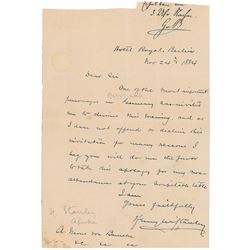 3 Dec
Hotel Royal, Berlin
Nov 24th 1884
Dear Sir
One of the most important
personages in Germany has invited
me to dinner this evening, and as
I can not afford to decline this
invitation for many reasons I
beg you will do me the favor
to take this apology for my non
attendance at your hospitable table
I am
Yours faithfully
Henry M Stanley
H. Stanley
A Baron von Bunsen
etc etc etc